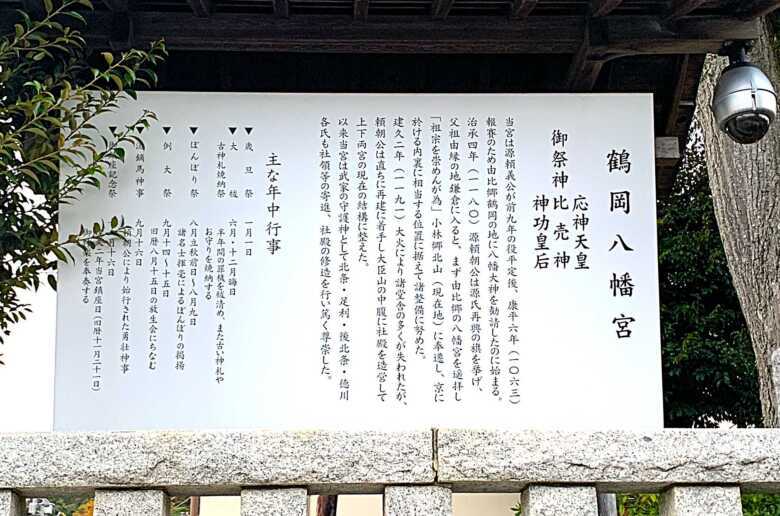 鶴岡八幡宮
応神天皇
御祭神 比売神
神功皇后
当宮は源頼義公が前九年の役平定後、康平六年(一〇六三)
報賽のため由比郷鶴岡の地に八幡大神を勧請したのに始まる。
治承四年(一一八〇)源頼朝公は源氏再興の旗を挙げ、
父祖由縁の地鎌倉に入ると、まず由比郷の八幡宮を遥拝し
「祖宗を崇めんが為」小林郷北山(現在地)に奉遷し、京に
於ける内裏に相当する位置に据えて諸整備に努めた。
建久二年(一一九一)大火により諸堂舎の多くが失われたが、
頼朝公は直ちに再建に着手し大臣山の中腹に社殿を造営して
上下両宮の現在の結構に整えた。
以来当宮は武家の守護神として北条・足利・後北条・徳川
各氏も社領等の寄進、社殿の修造を行い篤く尊崇した。
主な年中行事
▼歳旦祭 一月一日
▼大祓 六月・十二月晦日
古神札焼納祭 半年間の罪穢を祓清め、また古い神札や
お守りを焼納する
▼ぼんぼり祭 八月立秋前日〜八月九日
諸名士揮毫によるぼんぼりの掲揚
▼例大祭 九月十四〜十五日
旧暦八月十五日の放生会にちなむ
鏑馬神事 九月十六日
頼朝公により始行された勇壮神事
座記念祭 十六日
年当宮鎮座日(旧暦十一月二十一日)
を奉奏する